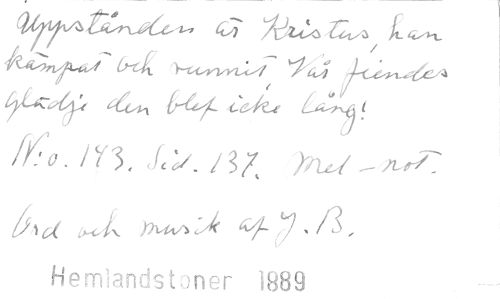 Uppstånden är Kristus, han
kämpat och vunnit, Vår fiendes
glädje den blef icke lång!
N:o. 143. Sid. 137. Mel-not.
Ord och musik af J. B.
Hemlandstoner 1889